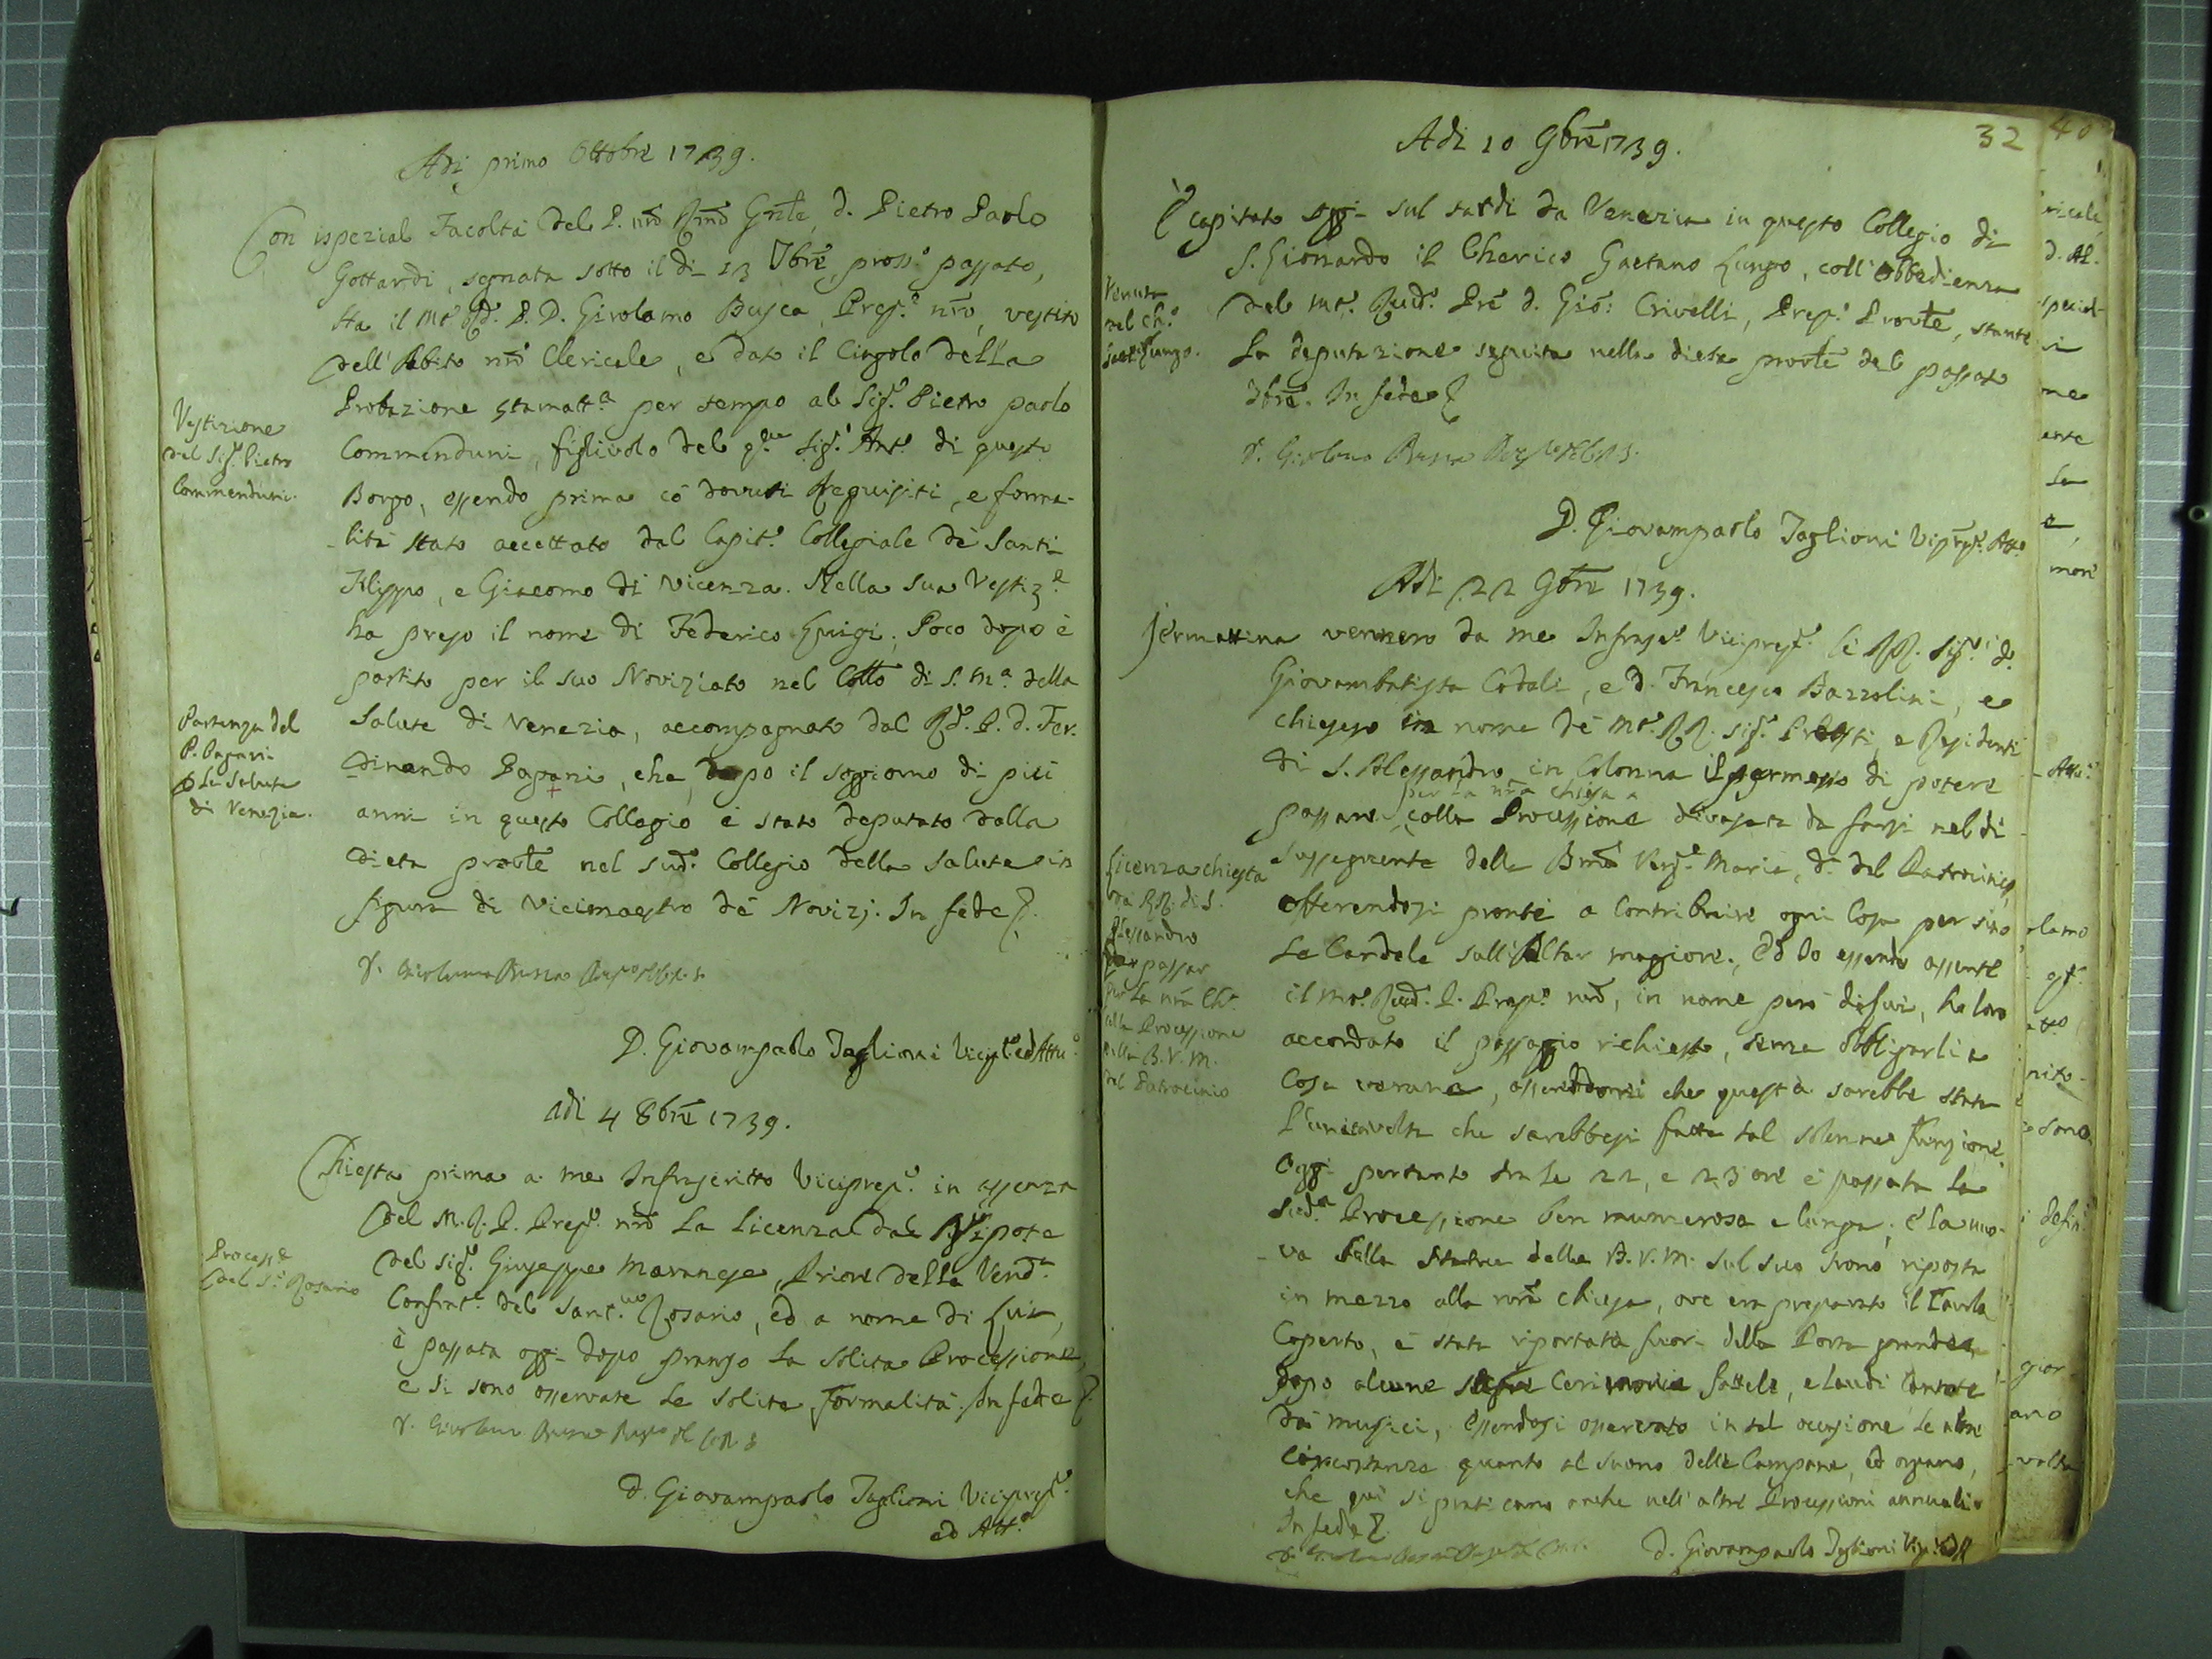 Adi primo Ottobre 1739.
Con ispezial Facoltà del P. nrō Rmō Gnle, d. Pietro Paolo
Gottardi, segnata sotto il dì 23 7brē pross.º passato,
ha il Mº Rd. P. D. Girolamo Busca, Prep.º nrō, vestito
dell'Abito nrō Clericale, e dato il Cingolo della
Probazione stamatt.ª per tempo al Sig.r Pietro paolo
Commenduni, figlivolo del q.m Sig.r Ant.º di questo
Borgo, essendo prima cō dovuti Requisiti, e forma-
lità stato accettato dal Capit.º Collegiale de' Santi
Filippo, e Giacomo di Vicenza. Nella sua Vestiz.e
ha preso il nome di Federico Luigi. Poco dopo è
partito per il suo Noviziato nel Collō di S. M.ª della
Salute di Venezia, accompagnato dal Rd. P. d. Fer-
dinando Pagani, che, dopo il soggiorno di più
anni in questo Collegio è stato deputato dalla
dieta provle nel sud.º Collegio della Salute in
figura di Vicemaestro de' Novizj. In fede &.
Vestizione
del Sig.r Pietro
Commenduni.
Partenza del
P. Pagani
p la Salute
di Venezia.
D. Girolamo Busca Prep.to
D. Giovampaolo Taglioni Vicep.to ed Attu.º
adi 4 8brē 1739.
Chiesta prima a me Infrascritto Viceprep.º in assenza
del M. R. P. Prep.º nrō la licenza dal Nipote
del Sig.r Giuseppe Marenese, Priore della Vend.ª
Confrat.ª del Sant.mo Rosario, ed a nome di Lui,
è passata oggi dopo pranzo la solita Processione,
e si sono osservate le solite formalità. In fede &.
Process.e
del S.º Rosario
D. Girolamo Busca Prep.to
d. Giovampaolo Taglioni Viceprep.º
ed Att.º
32
40
Adi 10 9brē 1739.
È capitato oggi sul tardi da Venezia in questo Collegio di
S. Lionardo il Cherico Gaetano Lungo, coll'obbedienza
del mº. Rud.º Prē d. Giō: Crivelli, Prep.º Provle, stante
la deputazione seguita nella dieta provle del passato
7brē. In fede &
Venuta
nel ch.º
Gaet. Lungo.
D. Girolamo Busca Prep.to
D. Giovampaolo Taglioni Viceprep.º Att.º
Adi 22 9brē 1739.
Jermattina vennero da me Infrasc.º Viceprep.º li RR. Sig.ri d.
Giovambatista Codali, e d. Francesco Bazzolini, e
chiesero in nome de' Mº. RR. Sig.ri Preposti, e Residenti
di S. Alessandro in Colonna il permesso di potere
per la nrā chiesa
passare colla Processione divisata da farsi nel dì
susseguente della Bmā Verg.e Maria, dº del Patrocinio,
offerendosi pronti a contribuire ogni cosa per sino
le Candele sull'Altar maggiore. Ed Io essendo assente
il Mº. Rud. P. Prep.º nrō, in nome però di lui, ho loro
accordato il passaggio richiesto, senza obbligarli a
cosa veruna, che questa sarebbe stata
l'unica volta che sarebbesi fatta tal solenne funzione.
Oggi pertanto tra le 22, e 23 ore è passata la
sud.ª Processione ben numerosa e lunga; e la nuo-
va Statua della B.V.M. sul suo trono riposta
in mezzo alla nrā chiesa, ove era preparato il Tavolo
Coperto, è stata riportata fuori della Porta grande,
dopo alcune Cerimonie fattele, e laudi cantate
dai musici, essendosi osservato in tal occasione le altre
circostanze quanto al suono delle Campane, ed organo,
che quì si praticano anche nell'altre Processioni annuali.
In fede &.
Licenza chiesta
da RR. di S.
Alessandro
per passar
per la nrā Ch.ª
colla Processione
della B.V.M.
del Patrocinio
d. Giovampaolo Taglioni